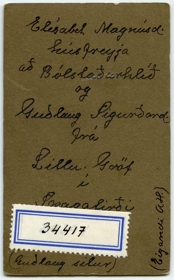 Elísabet Magnúsd.
húsfreyja
að Bólstaðarhlíð
og
Guðlaug Sigurðard
frá
Litlu-Gröf
í
Skagafirði
34417
(Guðlaug situr)
(Eigandi A.H.)